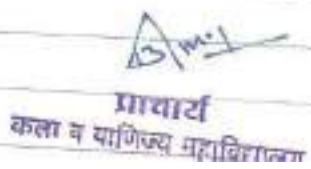 प्राचार्य
कला व वाणिज्य महाविद्यालय